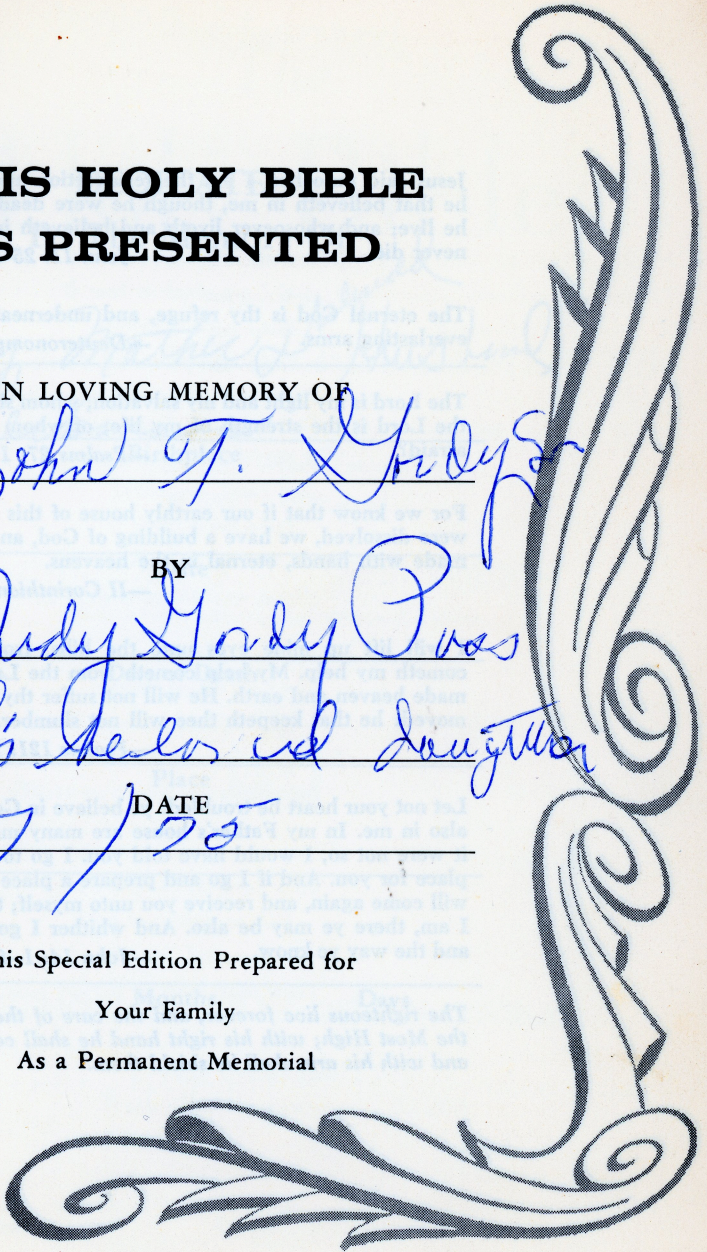 IS HOLY BIBLE
S PRESENTED
N LOVING MEMORY OF
John T. Gordy Sr
BY
Judy Gordy Poss
his beloved daughter
DATE
/ 75
his Special Edition Prepared for
Your Family
As a Permanent Memorial